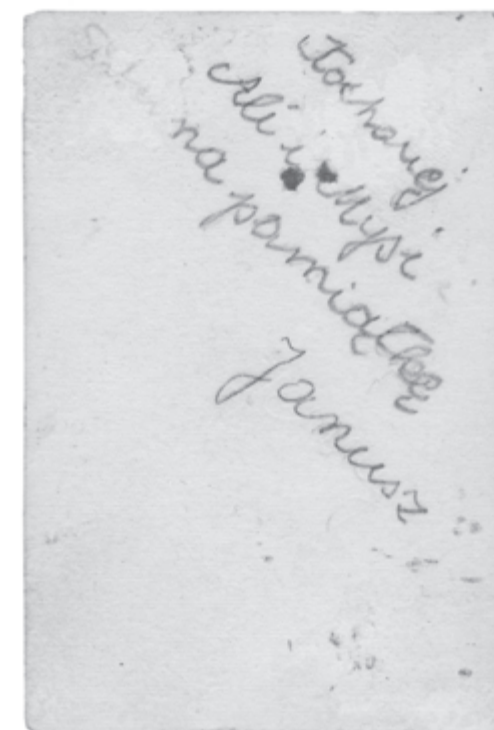 Kochanej
Ali i Mysi
na pamiątkę
Janusz